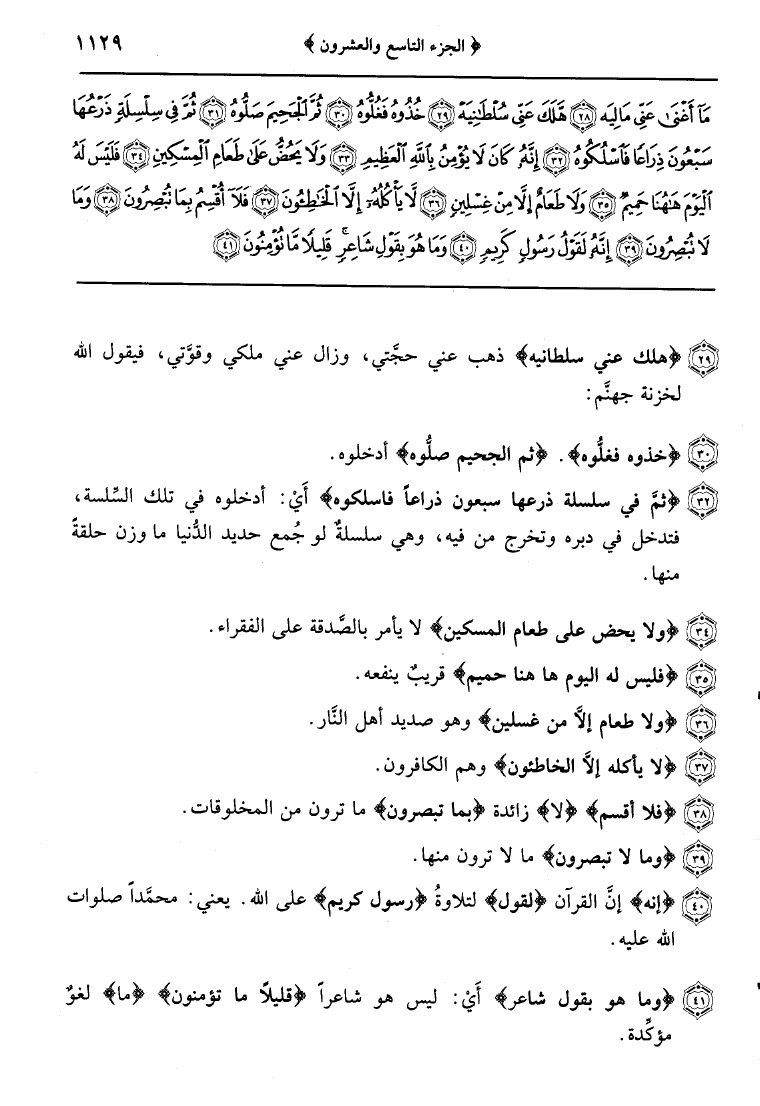 ﴿ الجزء التاسع والعشرون ﴾ ١١٢٩
مَآ أَغْنَىٰ عَنِّى مَالِيَهْ ۝٢٨ هَّلَكَ عَنِّى سُلْطَٰنِيَهْ ۝٢٩ خُذُوهُ فَغُلُّوهُ ۝٣٠ ثُمَّ ٱلْجَحِيمَ صَلُّوهُ ۝٣١ ثُمَّ فِى سِلْسِلَةٍ ذَرْعُهَا
سَبْعُونَ ذِرَاعًا فَٱسْلُكُوهُ ۝٣٢ إِنَّهُۥ كَانَ لَا يُؤْمِنُ بِٱللَّهِ ٱلْعَظِيمِ ۝٣٣ وَلَا يَحُضُّ عَلَىٰ طَعَامِ ٱلْمِسْكِينِ ۝٣٤ فَلَيْسَ لَهُ
ٱلْيَوْمَ هَٰهُنَا حَمِيمٌ ۝٣٥ وَلَا طَعَامٌ إِلَّا مِنْ غِسْلِينٍ ۝٣٦ لَّا يَأْكُلُهُۥٓ إِلَّا ٱلْخَٰطِـُٔونَ ۝٣٧ فَلَآ أُقْسِمُ بِمَا تُبْصِرُونَ ۝٣٨ وَمَا
لَا تُبْصِرُونَ ۝٣٩ إِنَّهُۥ لَقَوْلُ رَسُولٍ كَرِيمٍ ۝٤٠ وَمَا هُوَ بِقَوْلِ شَاعِرٍ ۚ قَلِيلًا مَّا تُؤْمِنُونَ ۝٤١
٢٩ ﴿هلك عني سلطانيه﴾ ذهب عني حجَّتي، وزال عني ملكي وقوَّتي، فيقول الله
لخزنة جهنَّم:
٣٠ ﴿خذوه فغلُّوه﴾. ﴿ثم الجحيم صلُّوه﴾ أدخلوه.
٣٢ ﴿ثمَّ في سلسلة ذرعها سبعون ذراعاً فاسلكوه﴾ أَيْ: أدخلوه في تلك السِّلسة،
فتدخل في دبره وتخرج من فيه، وهي سلسلةٌ لو جُمع حديد الدُّنيا ما وزن حلقةً
منها.
٣٤ ﴿ولا يحض على طعام المسكين﴾ لا يأمر بالصَّدقة على الفقراء.
٣٥ ﴿فليس له اليوم ها هنا حميم﴾ قريبٌ ينفعه.
٣٦ ﴿ولا طعام إلاَّ من غسلين﴾ وهو صديد أهل النَّار.
٣٧ ﴿لا يأكله إلاَّ الخاطئون﴾ وهم الكافرون.
٣٨ ﴿فلا أقسم﴾ ﴿لا﴾ زائدة ﴿بما تبصرون﴾ ما ترون من المخلوقات.
٣٩ ﴿وما لا تبصرون﴾ ما لا ترون منها.
٤٠ ﴿إنه﴾ إنَّ القرآن ﴿لقول﴾ لتلاوةُ ﴿رسول كريم﴾ على الله. يعني: محمَّداً صلوات
الله عليه.
٤١ ﴿وما هو بقول شاعر﴾ أَيْ: ليس هو شاعراً ﴿قليلاً ما تؤمنون﴾ ﴿ما﴾ لغوٌ
مؤكِّدة.